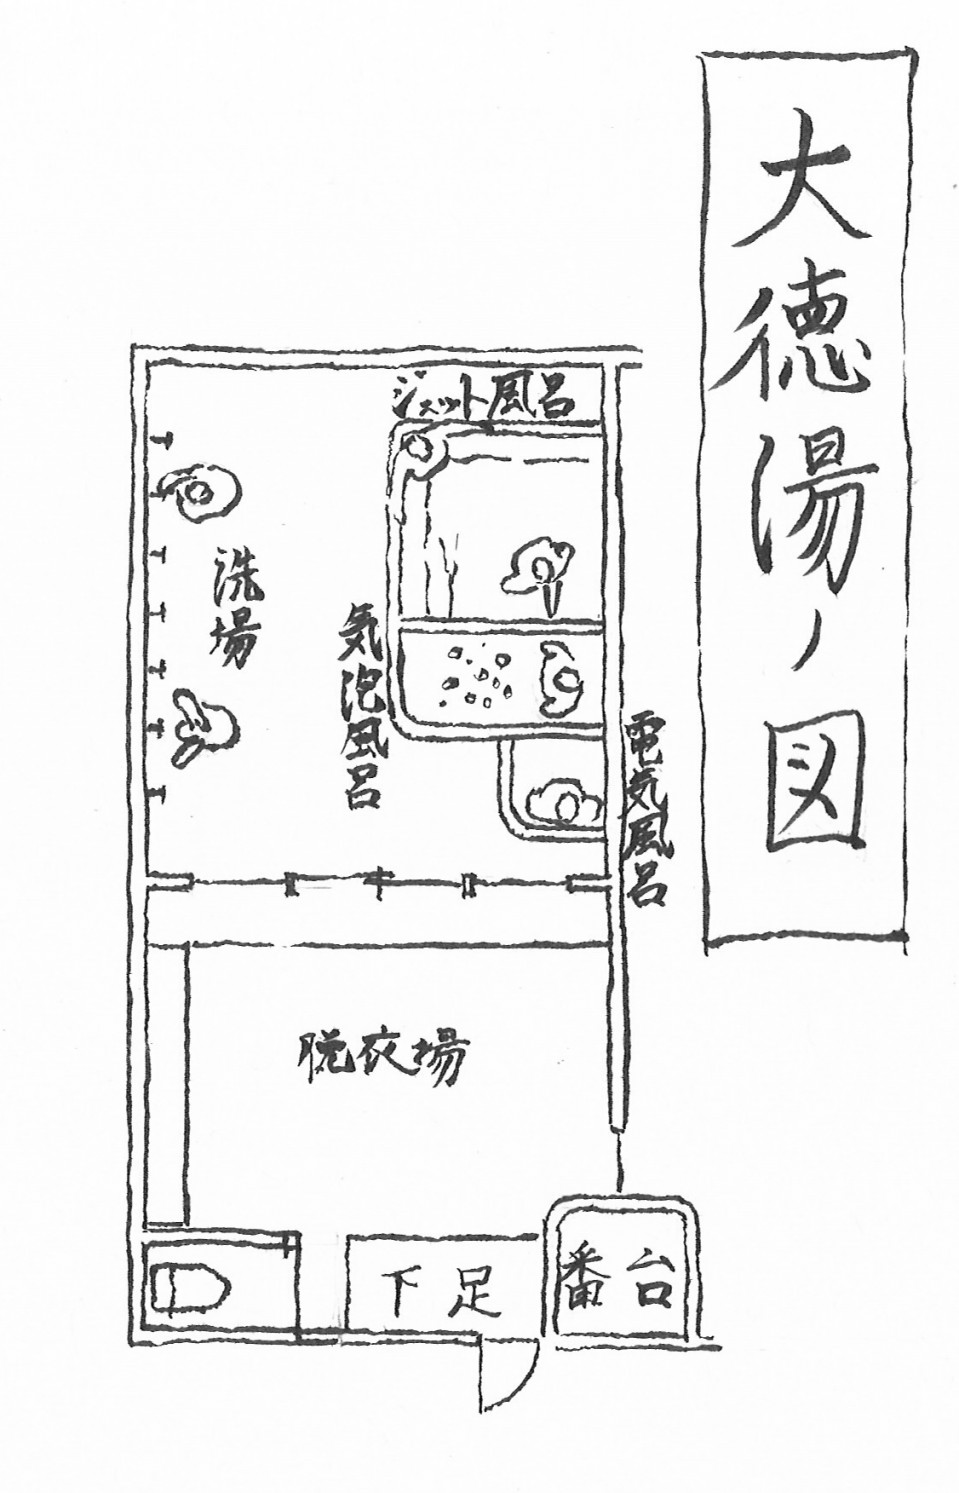 大徳湯ノ図
ジェット風呂
洗場
気泡風呂
電気風呂
脱衣場
下足
番台